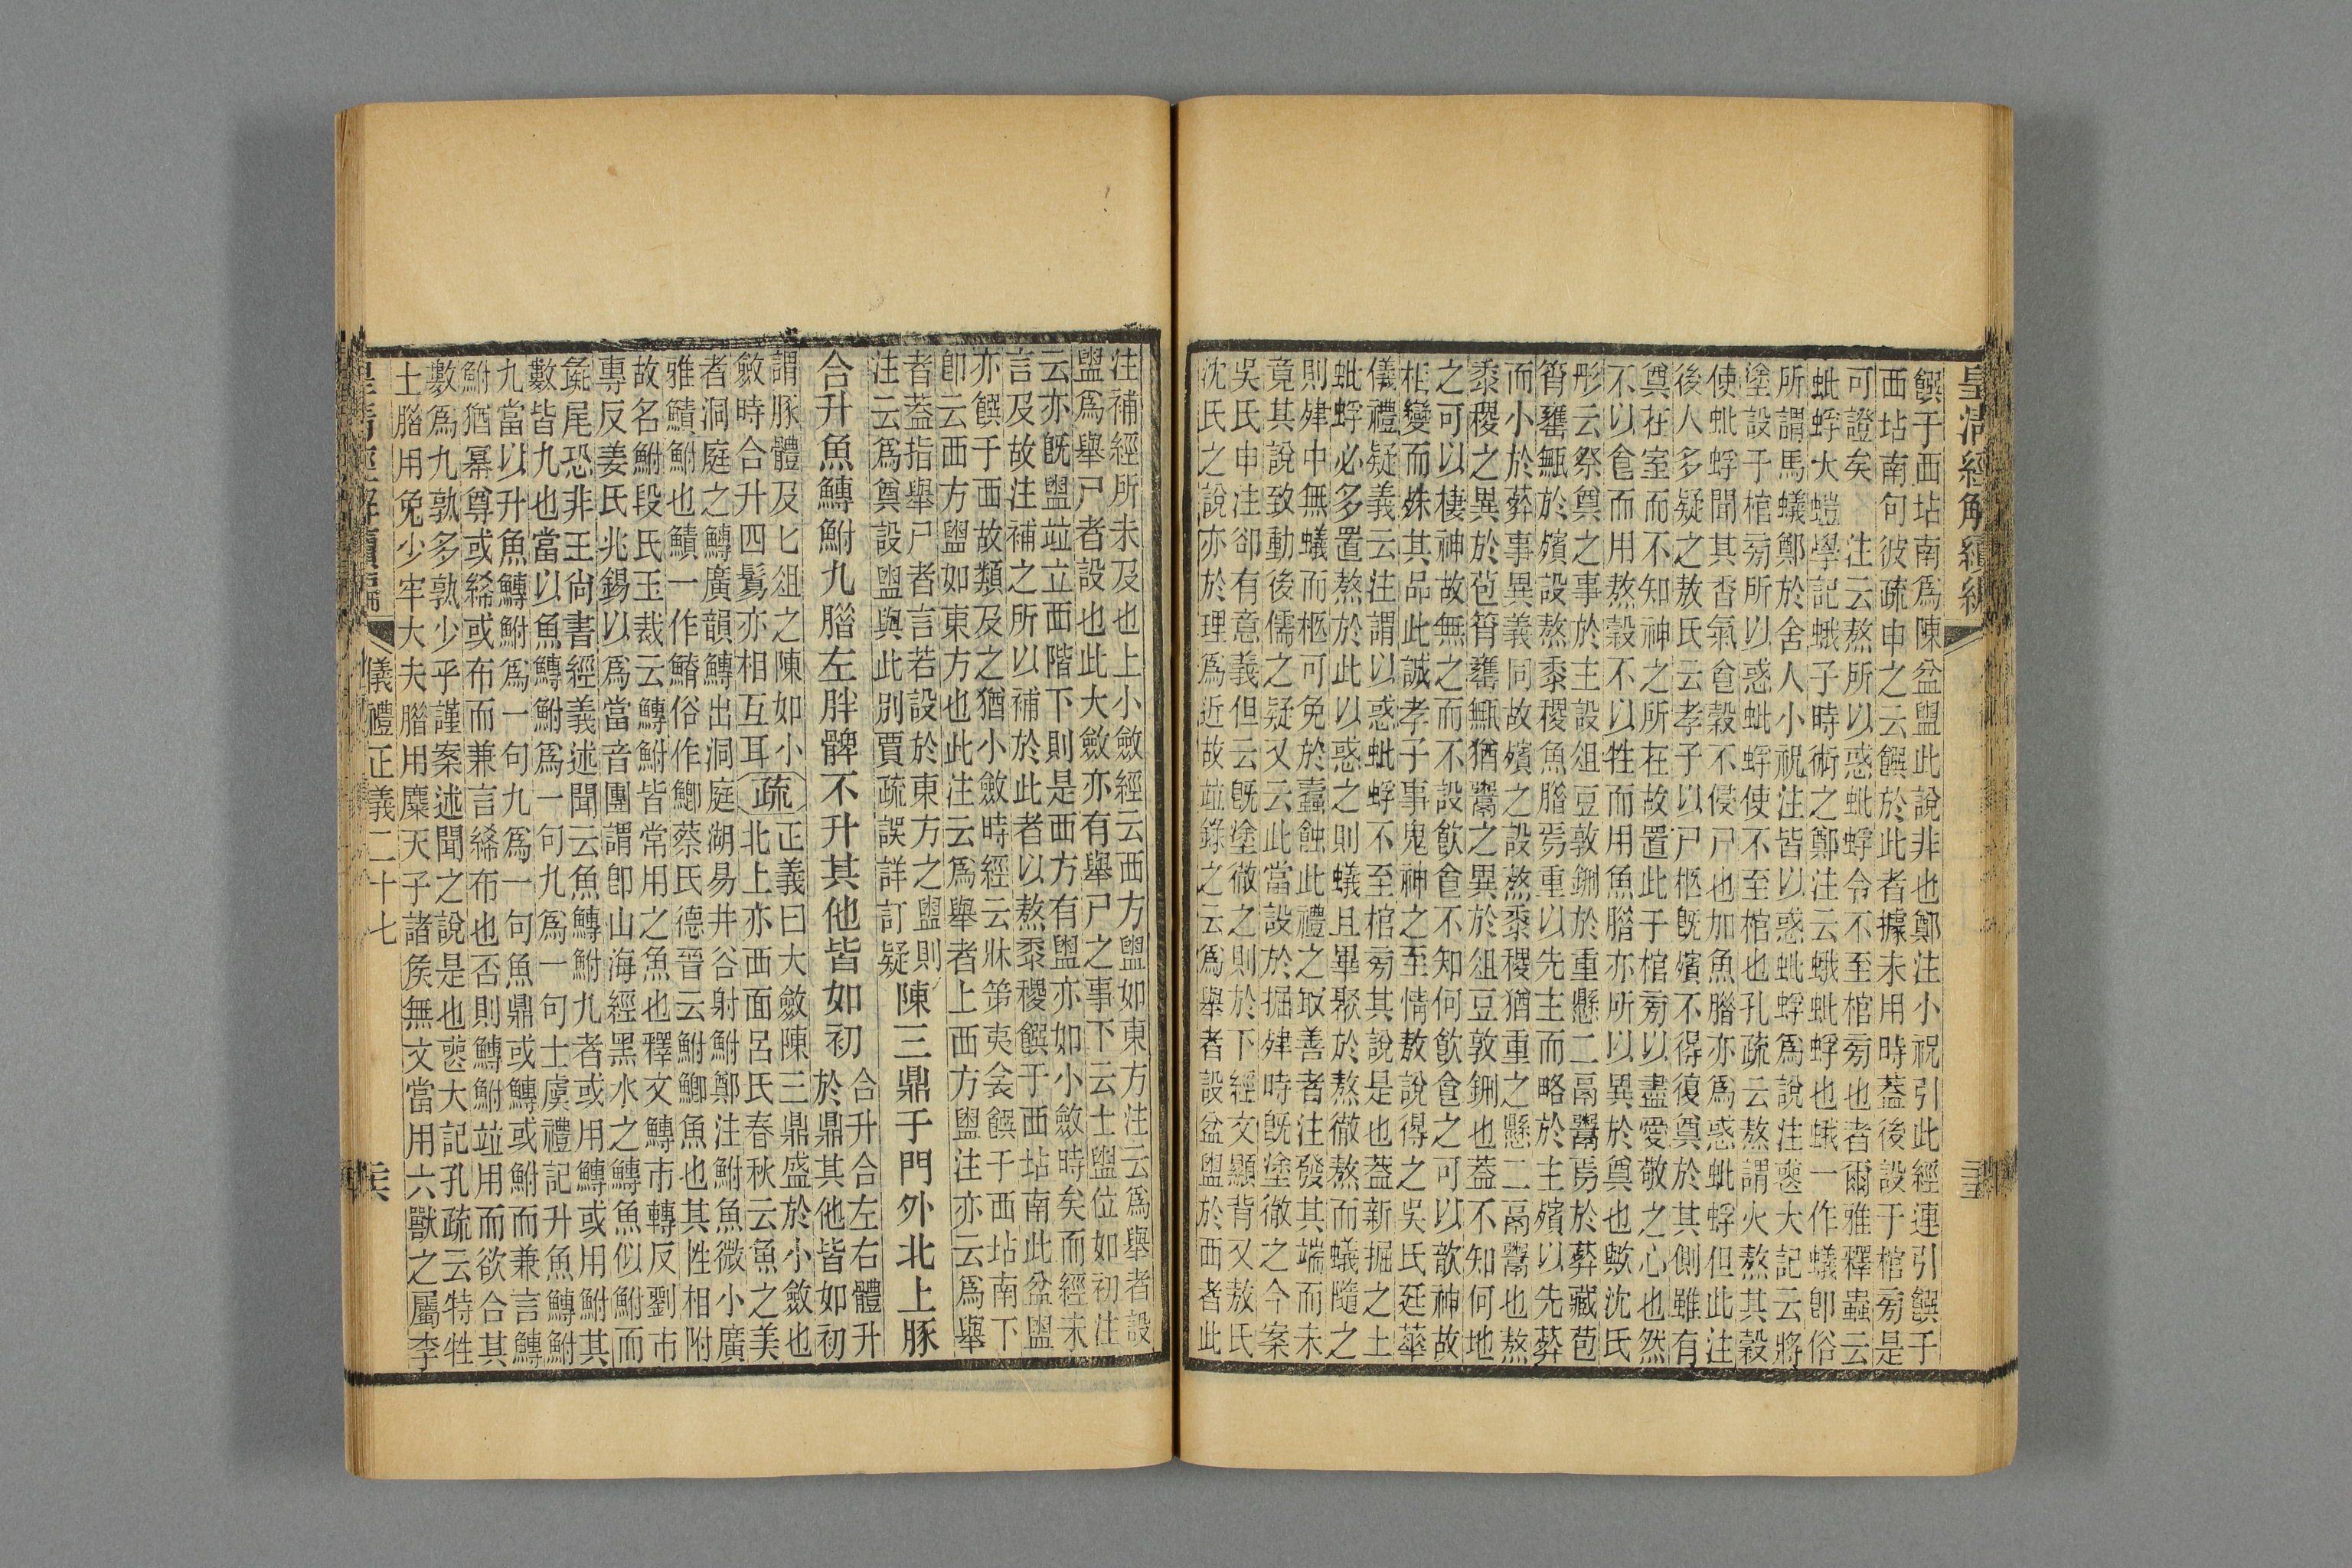 皇清經解續編
饌于西坫南爲陳盆盥此說非也鄭注小祝引此經連引饌于
西坫南句彼疏申之云饌於此者據未用時葢後設于棺㫄是
可證矣 注云熬所以惑蚍蜉令不至棺㫄也者爾雅釋蟲云
蚍蜉大螘學記蛾子時術之鄭注云蛾蚍蜉也蛾一作蟻卽俗
所謂馬蟻鄭於舍人小祝注皆以惑蚍蜉爲說注喪大記云將
塗設于棺㫄所以惑蚍蜉使不至棺也孔疏云熬謂火熬其穀
使蚍蜉聞其香氣食穀不侵尸也加魚腊亦爲惑蚍蜉但此注
後人多疑之敖氏云孝子以尸柩旣殯不得復奠於其側雖有
奠在室而不知神之所在故置此于棺㫄以盡愛敬之心也然
不以食而用熬穀不以牲而用魚腊亦所以異於奠也歟沈氏
彤云祭奠之事於主設俎豆敦鉶於重懸二鬲鬻焉於葬藏苞
筲罋甒於殯設熬黍稷魚腊焉重以先主而略於主殯以先葬
而小於葬事異義同故殯之設熬黍稷猶重之懸二鬲鬻也熬
黍稷之異於苞筲罋甒猶鬻之異於俎豆敦鉶也葢不知何地
之可以棲神故無之而不設飮食不知何飮食之可以歆神故
相變而殊其品此誠孝子事鬼神之至情敖說得之吳氏廷華
儀禮疑義云注謂以惑蚍蜉不至棺㫄其說是也葢新掘之土
蚍蜉必多置熬於此以惑之則蟻且畢聚於熬徹熬而蟻隨之
則肂中無蟻而柩可免於蠧蝕此禮之取善者注發其端而未
竟其說致動後儒之疑又云此當設於掘肂時旣塗徹之今案
吳氏申注卻有意義但云旣塗徹之則於下經文顯背又敖氏
沈氏之說亦於理爲近故竝錄之云爲舉者設盆盥於西者此
注補經所未及也上小斂經云西方盥如東方注云爲舉者設
盥爲舉尸者設也此大斂亦有舉尸之事下云士盥位如初注
云亦旣盥竝立西階下則是西方有盥亦如小斂時矣而經未
言及故注補之所以補於此者以熬黍稷饌于西坫南此盆盥
亦饌于西故類及之猶小斂時經云牀笫夷衾饌于西坫南下
卽云西方盥如東方也此注云爲舉者上西方盥注亦云爲舉
者葢指舉尸者言若設於東方之盥則
注云爲奠設盥與此別賈疏誤詳訂疑陳三鼎于門外北上豚
合升魚鱄鮒九腊左胖髀不升其他皆如初合升合左右體升
於鼎其他皆如初
謂豚體及匕俎之陳如小疏正義曰大斂陳三鼎盛於小斂也
斂時合升四鬄亦相互耳北上亦西面呂氏春秋云魚之美
者洞庭之鱄廣韻鱄出洞庭湖易井谷射鮒鄭注鮒魚微小廣
雅鰿鮒也鰿一作鯽俗作鯽蔡氏德晉云鮒鯽魚也其性相附
故名鮒段氏玉裁云鱄鮒皆常用之魚也釋文鱄市轉反劉市
專反姜氏兆錫以爲當音團謂卽山海經黑水之鱄魚似鮒而
彘尾恐非王尙書經義述聞云魚鱄鮒九者或用鱄或用鮒其
數皆九也當以魚鱄鮒爲一句九爲一句士虞禮記升魚鱄鮒
九當以升魚鱄鮒爲一句九爲一句魚鼎或鱄或鮒而兼言鱄
鮒猶冪尊或綌或布而兼言綌布也否則鱄鮒竝用而欲合其
數爲九孰多孰少乎謹案述聞之說是也喪大記孔疏云特牲
士腊用兔少牢大夫腊用麋天子諸矦無文當用六獸之屬李
皇清經解續編 儀禮正義二十七